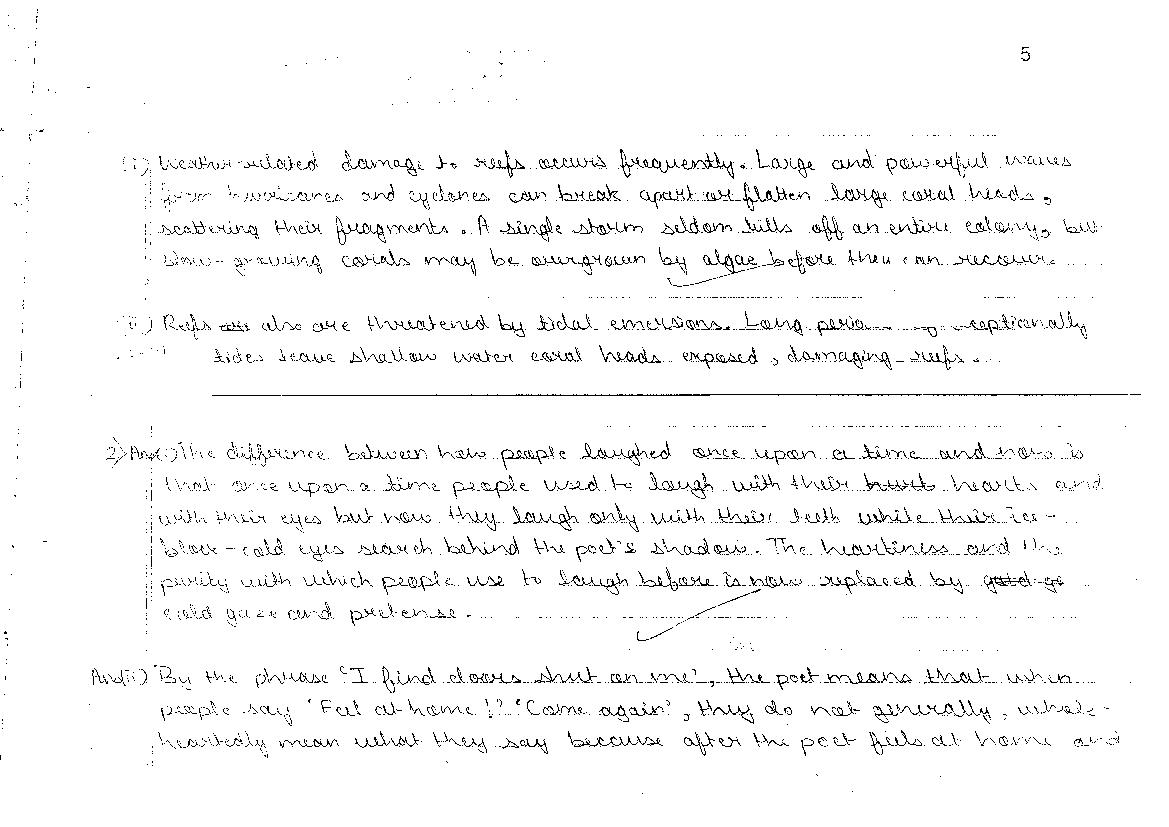 5
(i) Weather-related damage to reefs occurs frequently. Large and powerful waves
from hurricanes and cyclones can break apart or flatten large coral heads,
scattering their fragments. A single storm seldom kills off an entire colony, but
slow-growing corals may be overgrown by algae before they can recover.
(ii) Reefs are also are threatened by tidal emersions. Long
tides leave shallow water coral heads exposed, damaging reefs.
2) Ans(i) The difference between how people laughed once upon a time and now is
that once upon a time people used to laugh with their hearts and
with their eyes but now they laugh only with their teeth while their ice-
block-cold eyes search behind the poet's shadow. The heartiness and the
purity with which people use to laugh before is now replaced by
cold gaze and pretense.
Ans(ii) By the phrase 'I find doors shut on me', the poet means that when
people say 'Feel at home!' 'Come again', they do not generally, whole-
heartedly mean what they say because after the poet feels at home and